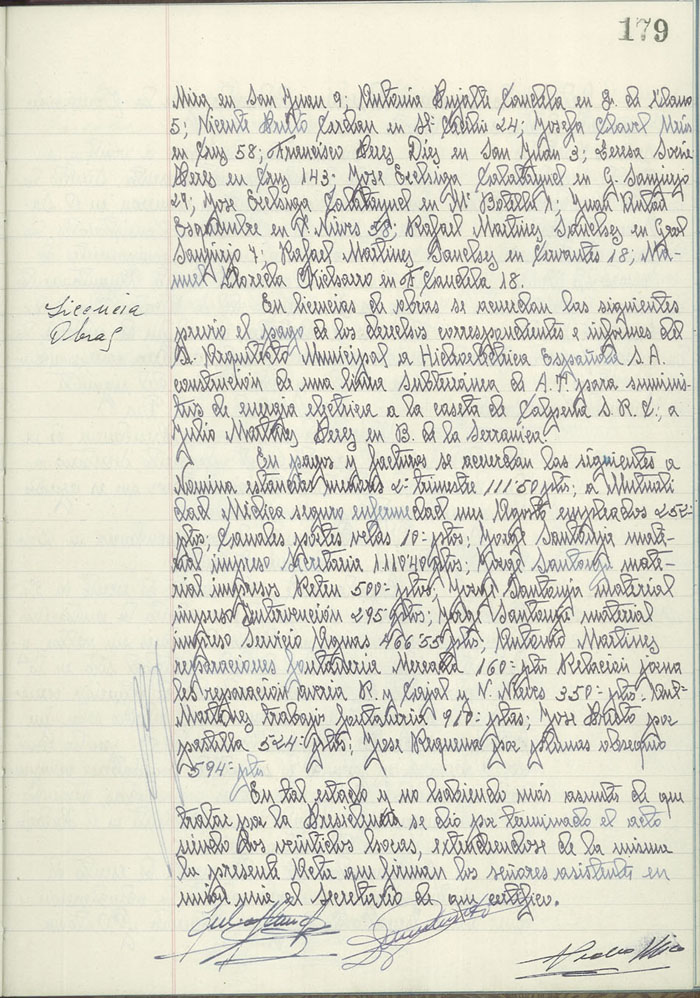 179
Mira en San Juan 9; Antonia Pujalte Candela en G. de Llano
5; Vicente Brotó Cerdan en Stª Catalina 24; Josefa Clavel
en Cruz 58; Francisco Perez Diez en San Juan 3; Teresa
Perez en Cruz 143; Jose Calatayud en G. Sanjurjo
29; Jose Calatayud en Mª Botella 1; Juan
en V. Nieves 58; Rafael Martinez Sanchez en Gral
Sanjurjo 7; Rafael Martinez Sanchez en Cervantes 18; Ma-
nuel en F. Candela 18.
Licencia
Obras
En licencias de obras se acuerdan las siguientes
previo el pago de los derechos correspondientes e informe del
S. Arquitecto Municipal a Hidroeléctrica Española S.A.
construción de una linea subterránea de A.T. para suminis-
tros de energia electrica a la caseta de Calpena S.R.C.; a
Julio Martinez Perez en B. de la Serranica.
En pagos y facturas se acuerdan las siguientes a
Nomina estancias 2º trimestre 111'50 ptas; a Mutuali
dad Médica seguro enfermedad mes Agosto empleados 252-
ptas; Canales portes velas 10- ptas; Jorge Santonja mate-
rial impreso Secretaria 1110'40 ptas; Jorge Santonja mate-
rial impresos 500- ptas; Jorge Santonja material
impreso Intervención 295 ptas; Jorge Santonja material
impreso Servicio Aguas 466'55 ptas; Antonio Martinez
reparaciones fontaneria Mercado 160- ptas Relación jorna
les reparación averia R. y Cajal y V. Nieves 350- ptas. Ant.
Martinez trabajos fontaneria 910- ptas; Jose Brotó por
pastilla 524- ptas; Jose Requena por plumas obsequio
594- ptas
En tal estado y no habiendo más asunto de que
tratar por la Presidencia se dió por terminado el acto
siendo las veintidos horas, extendiendose de la misma
la presente Acta que firman los señores asistente en
unión mía el Secretario de que certifico.
Pedro Mico